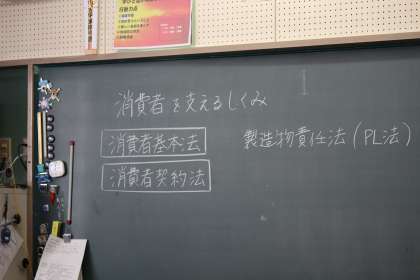 消費者を支えるしくみ
消費者基本法
製造物責任法(PL法)
消費者契約法